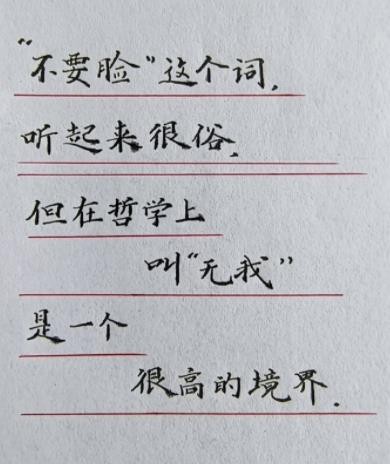 “不要脸”这个词,
听起来很俗.
但在哲学上
叫“无我”
是一个
很高的境界.